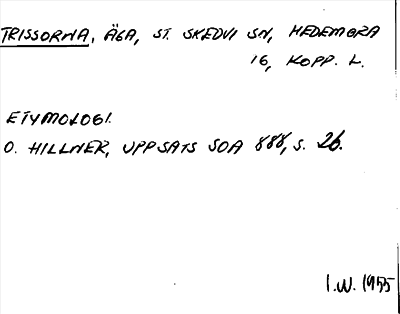 TRISSORNA, ÄGA, ST. SKEDVI SN, HEDEMORA
16, KOPP. L.
ETYMOLOGI.
O. HILLNER, UPPSATS SOA 888, S. 26.
I.W. 1955